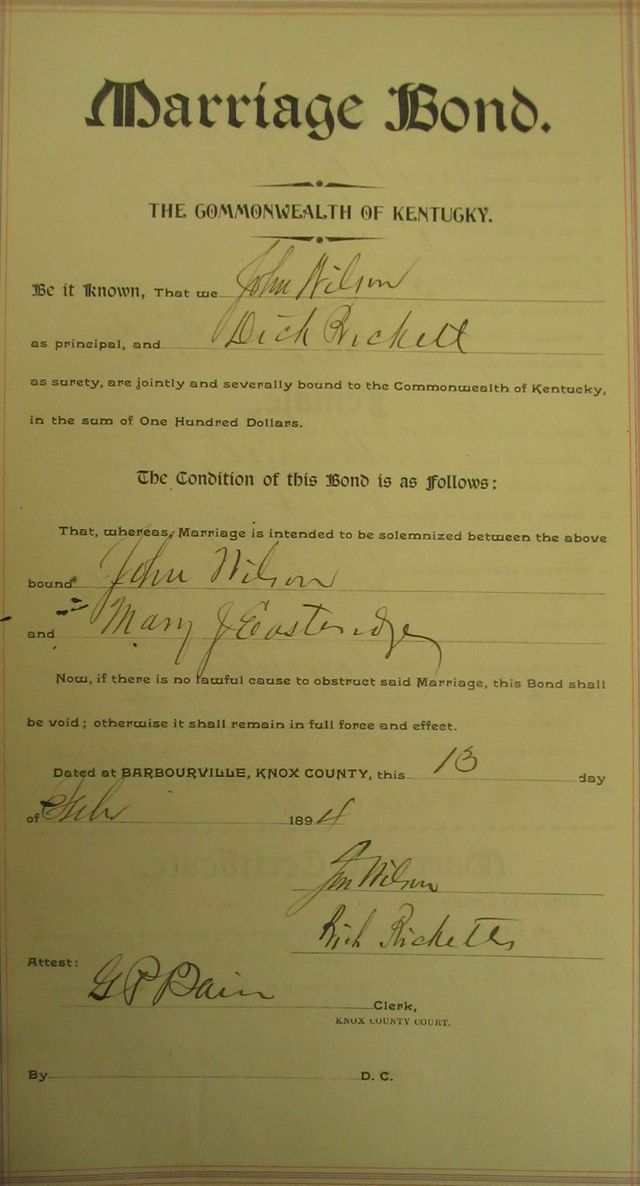 Marriage Bond.
THE COMMONWEALTH OF KENTUCKY.
Be it Known, That we John Wilson
as principal, and Dick Rickett
as surety, are jointly and severally bound to the Commonwealth of Kentucky,
in the sum of One Hundred Dollars.
The Condition of this Bond is as Follows:
That, whereas, Marriage is intended to be solemnized between the above
bound John Wilson
and Mary J Eastridge
Now, if there is no lawful cause to obstruct said Marriage, this Bond shall
be void; otherwise it shall remain in full force and effect.
Dated at BARBOURVILLE, KNOX COUNTY, this 13 day
of Feb 1894
Jno Wilson
Rich Ricketts
Attest:
G P Bain Clerk,
KNOX COUNTY COURT.
By D. C.